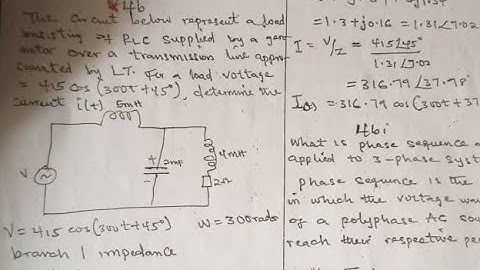 46
The circuit below represent a load
consisting of RLC supplied by a gen
erator over a transmission line appro
ximated by LT. For a load voltage
= 415 cos (300t+45°), determine the
current i(t)
5mH
V
+
-
2mF
4mH
2Ω
V = 415 cos(300t+45°) W = 300rad/s
branch 1 impedance
= 1.3 + j0.16 = 1.31∠7.02
I = V/Z = 415∠45°
1.31∠7.02
= 316.79∠37.98
= 316.79 cos(300t+37
46i
What is phase sequence
applied to 3-phase syst
phase sequence is the
in which the voltage wav
of a polyphase AC sou
reach their respective pe